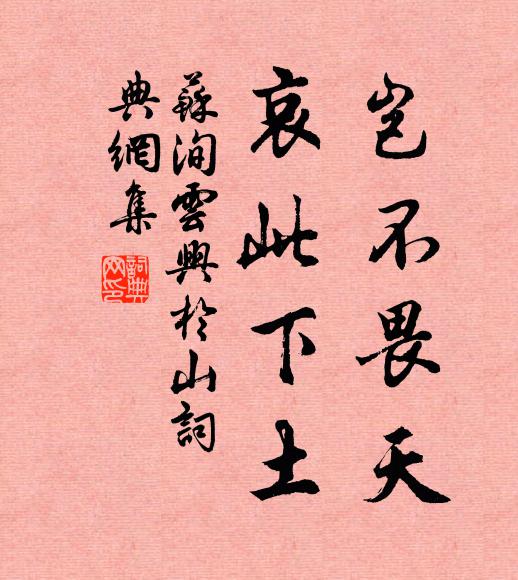 豈不畏天
哀此下土
蘇洵雲興於山詞
典網集
詞典網印